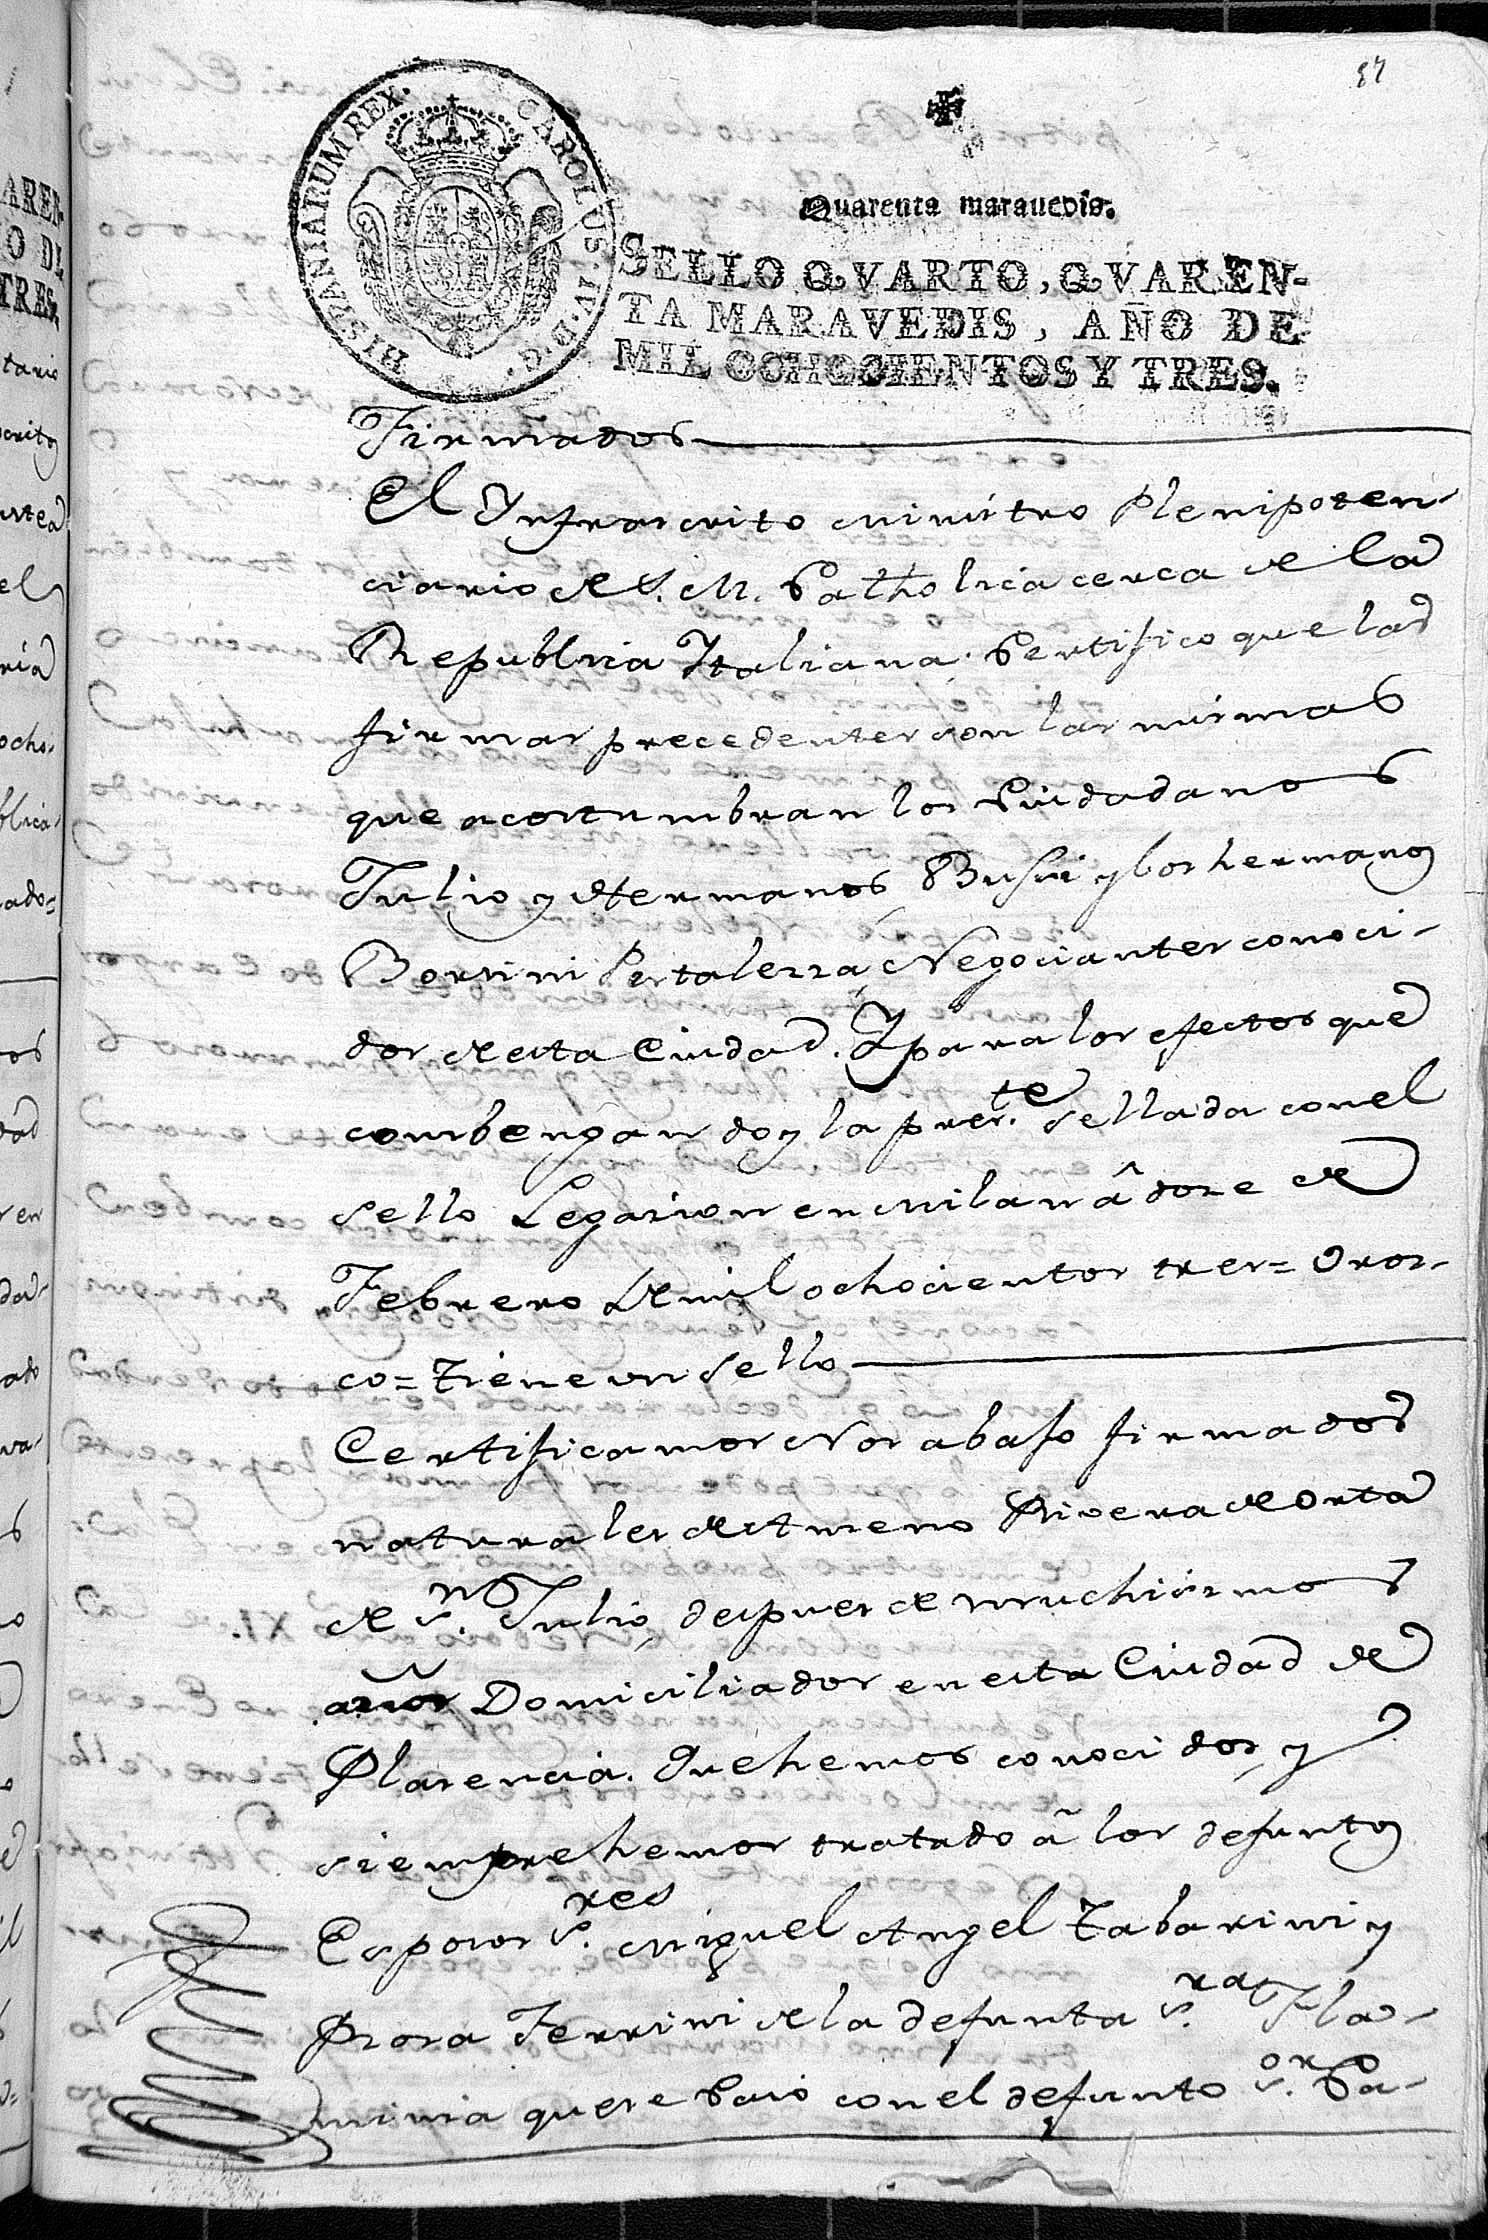 57
Quarenta maravedis.
HISPANIARUM REX. CAROLUS. IV. D. G.
SELLO QVARTO, QVAREN-
TA MARAVEDIS, AÑO DE
MIL OCHOCIENTOS Y TRES.
Firmados
El Ynfrascrito Ministro Plenipoten-
ciario de S. M. Catholica cerca de la
Republica Italiana. Certifico que las
firmas precedentes son las mismas
que acostumbran los Ciudadanos
Julio y Hermanos Busi y los hermanos
Borsini Negociantes conoci-
dos de esta Ciudad. Y para los efectos que
combengan doy la pres.te sellada con el
sello Legacion en Milan â doze de
Febrero de mil ochocientos tres = Oroz-
co = Tiene un sello
Certificamos Nos abajo firmados
naturales de Ameno Rivera de Orta
de S.n Julio, despues de muchisimos
años Domiciliados en esta Ciudad de
Plasencia. Que hemos conocidos, y
siempre hemos tratado â los defuntos
Esposos S.res Miguel Angel Tabarini y
Rosa Ferrini de la defunta S.ra Fla-
minia que se Casó con el defunto S.or Ca-